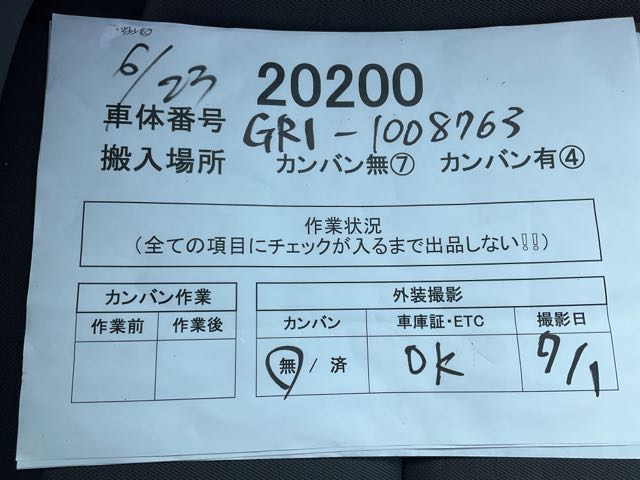 6/23
20200
車体番号 GR1-1008763
搬入場所 カンバン無⑦ カンバン有④
作業状況
(全ての項目にチェックが入るまで出品しない!!)
カンバン作業
作業前 作業後
外装撮影
カンバン 車庫証・ETC 撮影日
無 / 済 OK 7/1